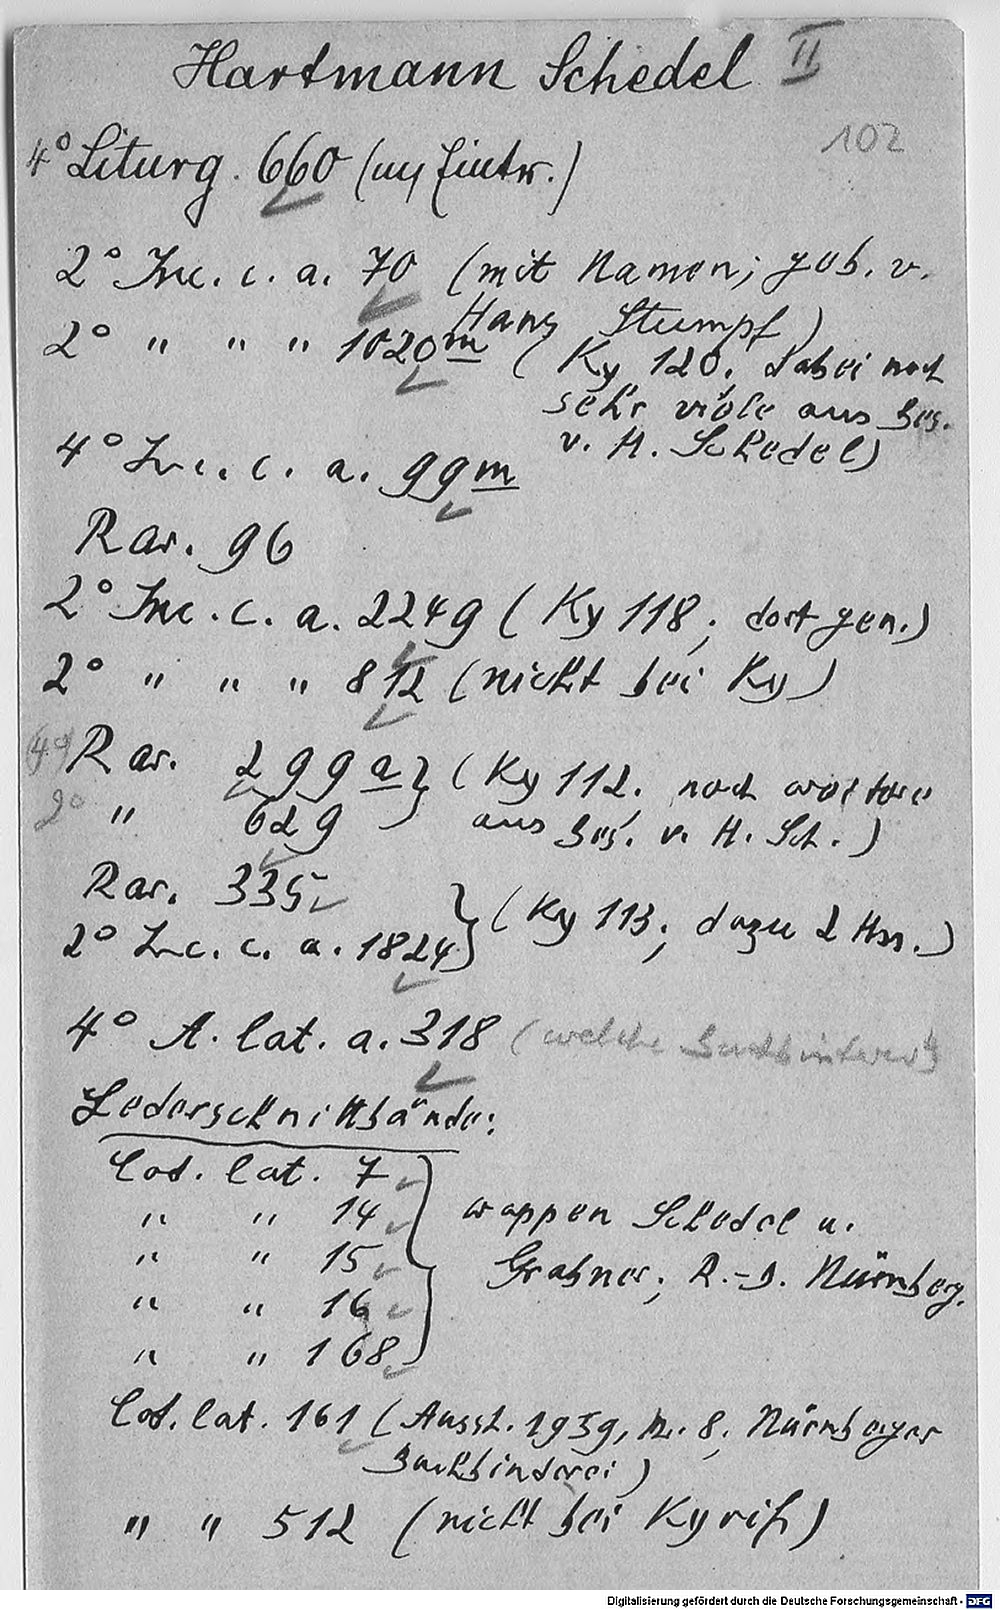 Hartmann Schedel II
102
4° Liturg. 660 (m Eintr.)
2° Inc. c. a. 70 (mit Namen; geb. v.
Hans Stumpf)
2° " " " 1020 m (Ky 120, dabei noch
sehr viele aus Bes.
v. H. Schedel)
4° Inc. c. a. 99 m
Rar. 96
2° Inc. c. a. 2249 (Ky 118; dort gen.)
2° " " " 812 (nicht bei Ky)
(4°) Rar. 299 a } (Ky 112, noch weitere
2° " 629 } aus Bes. v. H. Sch.)
Rar. 335
2° Inc. c. a. 1824 } (Ky 113, dazu 2 Hss.)
4° A. lat. a. 318 (welche
Lederschnittbände:
Cod. lat. 7
" " 14 } Wappen Schedel u.
" " 15 } Grabner; R.-D. Nürnberg.
" " 16
" " 168
Cod. lat. 161 (Ausst. 1939, Nr. 8, Nürnberger
Buchbinderei)
" " 512 (nicht bei Kyriß)
Digitalisierung gefördert durch die Deutsche Forschungsgemeinschaft - DFG